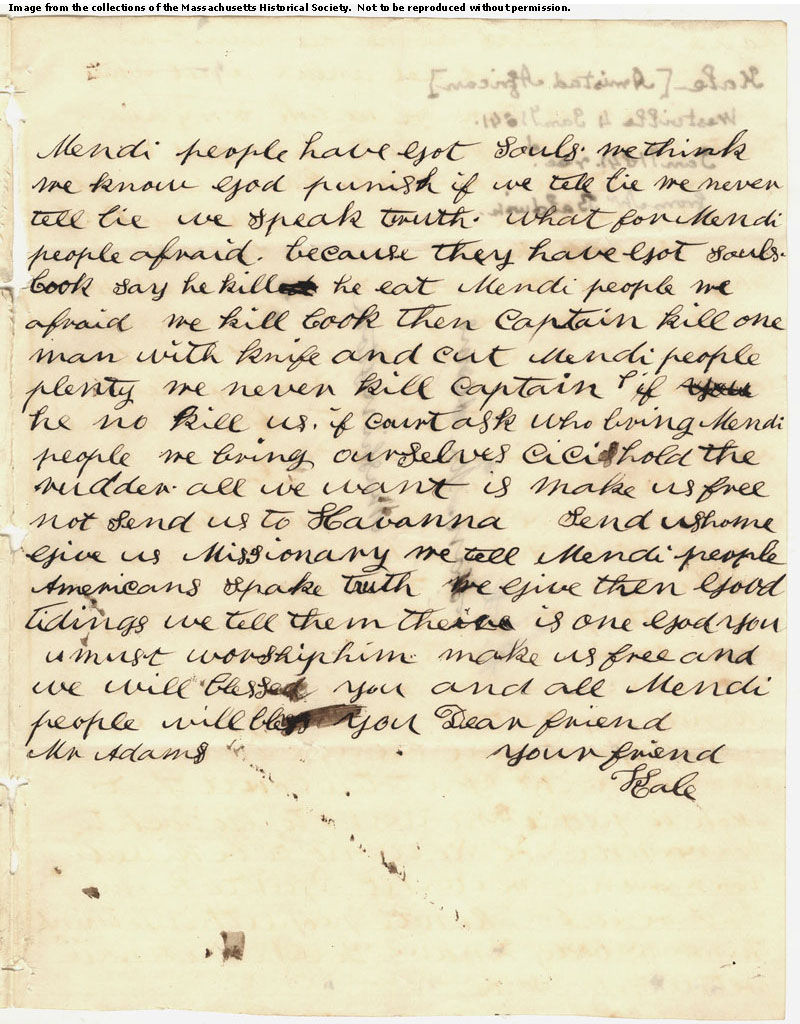 Image from the collections of the Massachusetts Historical Society. Not to be reproduced without permission.
Kale [Amistad African]
Westville 4 Jany 1841.
Mendi people have got Souls. we think
we know god punish if we tell lie we never
tell lie we speak truth. What for Mendi
people afraid. because they have got souls.
Cook say he kill he eat Mendi people we
afraid we kill cook then Captain kill one
man with knife and cut Mendi people
plenty we never kill Captain if you
he no kill us. if Court ask who bring Mendi
people we bring ourselves Cici hold the
rudder. all we want is make us free
not send us to Havanna Send us home
Give us Missionary we tell Mendi people
Americans spake truth we give then Good
tidings we tell them there is one god you
must worship him. make us free and
we will blessed you and all Mendi
people will bless you Dear friend
Mr Adams your friend
Kale